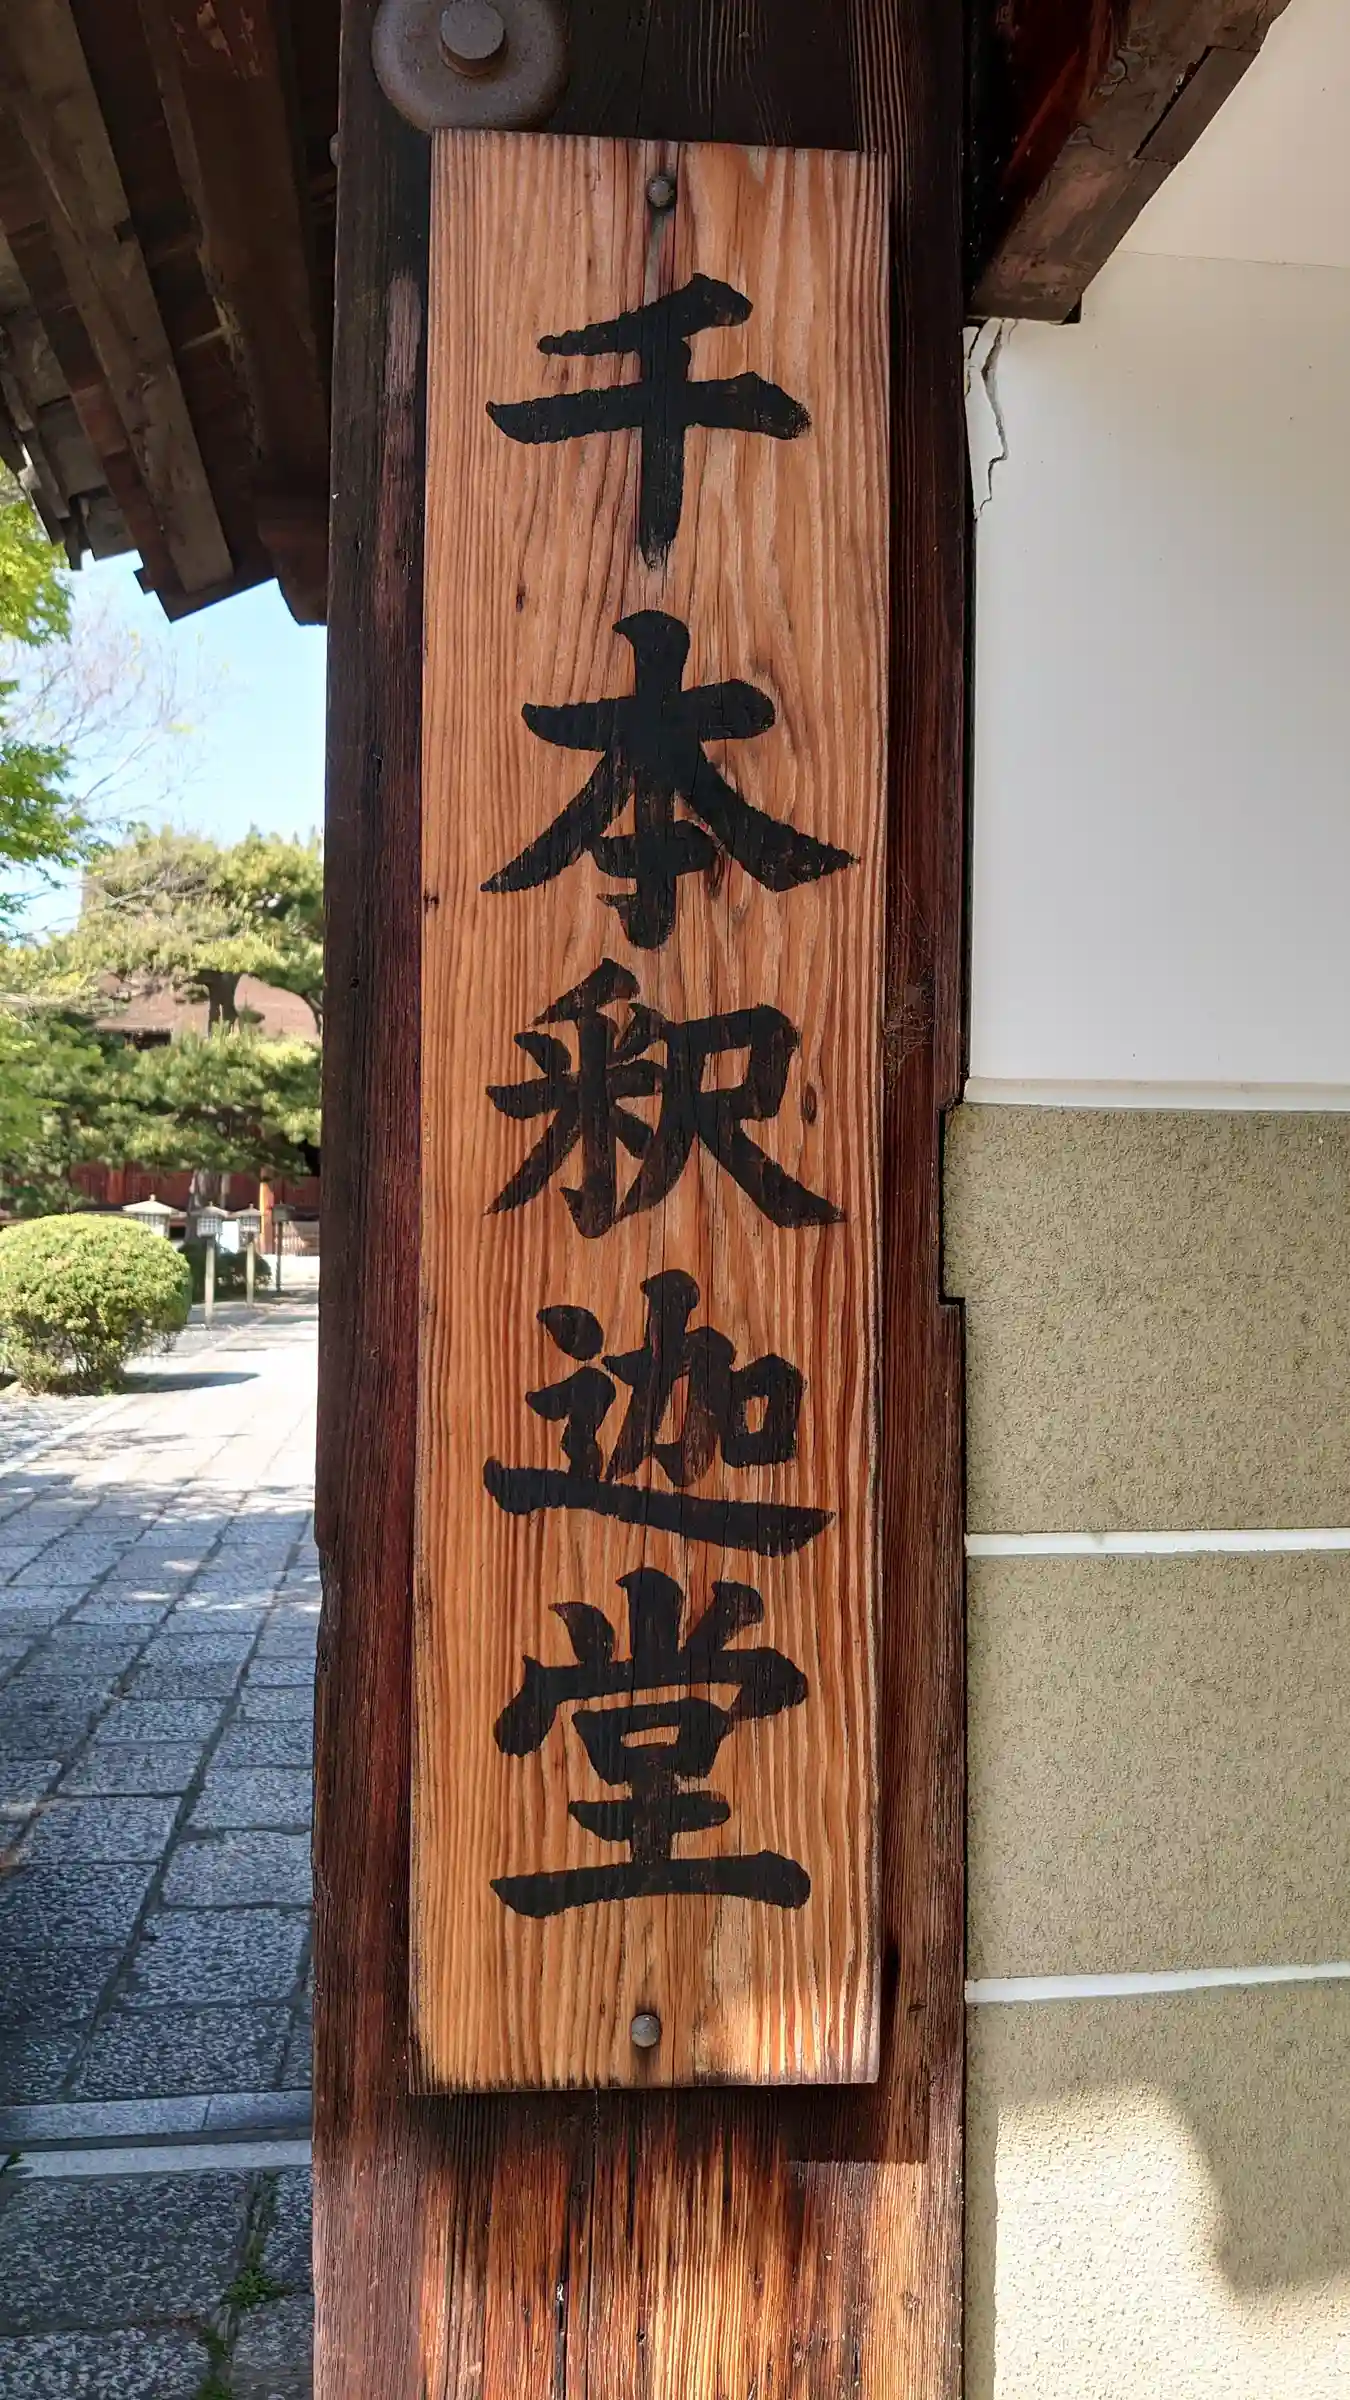 千本釈迦堂